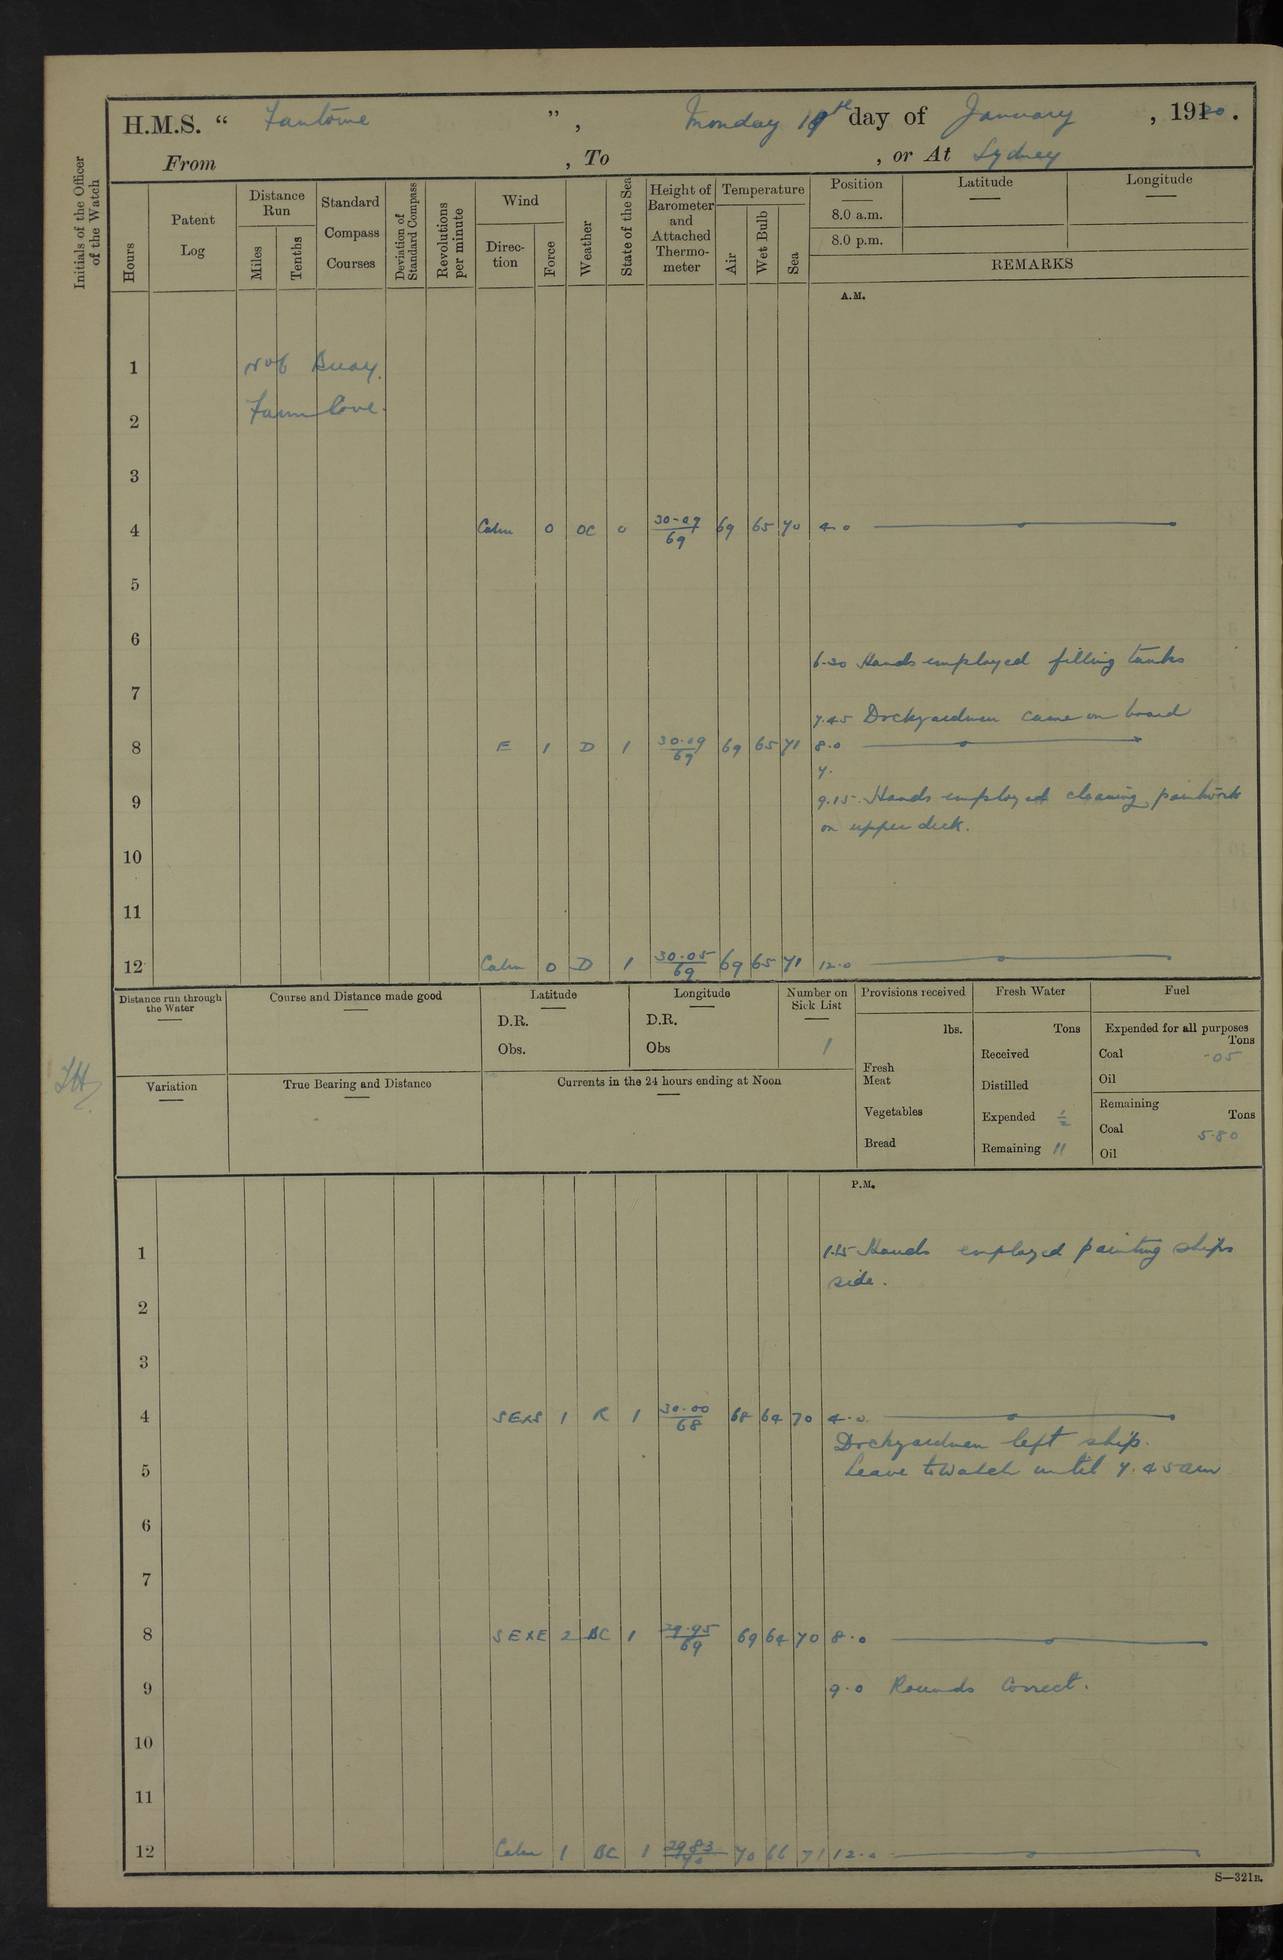 H.M.S. “ Fantome ” , Monday 19th day of January , 1920 .
From , To , or At Sydney
Initials of the Officer of the Watch
Hours
Patent Log
Distance Run
Miles
Tenths
Standard Compass Courses
Deviation of Standard Compass
Revolutions per minute
Wind
Direc-tion
Force
Weather
State of the Sea
Height of Barometer and Attached Thermo-meter
Temperature
Air
Wet Bulb
Sea
Position
8.0 a.m.
8.0 p.m.
Latitude
Longitude
REMARKS
A.M.
1 No 6 Buoy.
2 Farm Cove.
3
4 Calm 0 OC 0 30-07/69 69 65 70 4.0
5
6
6.30 Hands employed filling tanks
7
7.45 Dockyardmen came on board
8 E 1 D 1 30.09/69 69 65 71 8.0
9.
9 9.15 Hands employed cleaning paintwork
on upper deck.
10
11
12 Calm 0 D 1 30.05/69 69 65 71 12.0
Distance run through the Water
Course and Distance made good
Latitude
D.R.
Obs.
Longitude
D.R.
Obs
Number on Sick List
1
Provisions received
lbs.
Fresh Meat
Vegetables
Bread
Fresh Water
Tons
Received
Distilled
Expended ½
Remaining 11
Fuel
Expended for all purposes
Tons
Coal .05
Oil
Remaining
Tons
Coal 5.80
Oil
Variation
True Bearing and Distance
Currents in the 24 hours ending at Noon
P.M.
1 1.15 Hands employed painting ships
side.
2
3
4 SEXS 1 R 1 30.00/68 68 64 70 4.0
Dockyardmen left ship.
5 Leave to Watch until 7.45am
6
7
8 SEXE 2 BC 1 29.95/69 69 64 70 8.0
9 9.0 Rounds Correct.
10
11
12 Calm 1 BC 1 29.83/70 70 66 71 12.0
S—321B.